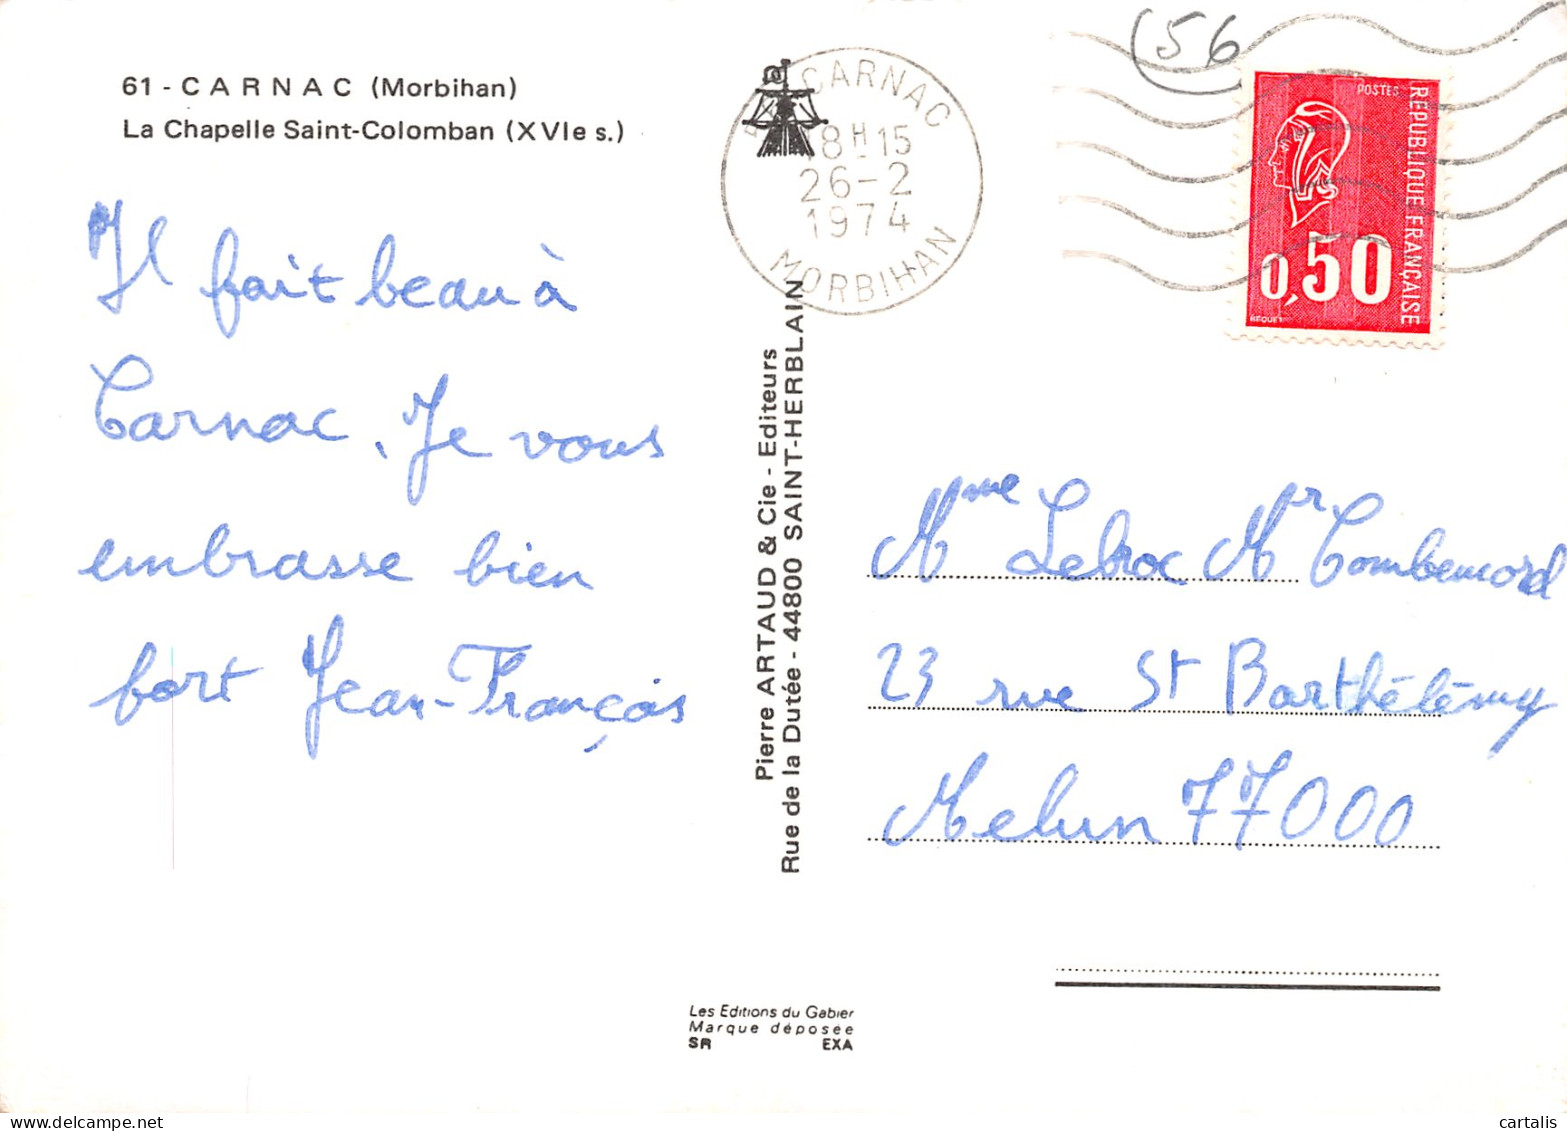 61 - CARNAC (Morbihan)
La Chapelle Saint-Colomban (XVIe s.)
Il fait beau à
Carnac. Je vous
embrasse bien
fort Jean-François
CARNAC
18H15
26-2
1974
MORBIHAN
(56
POSTES
REPUBLIQUE FRANÇAISE
0,50
BEQUET
Pierre ARTAUD & Cie - Editeurs
Rue de la Dutée - 44800 SAINT-HERBLAIN
Mme Lebroc Mr Combemord
23 rue St Barthélémy
Melun 77000
Les Editions du Gabier
Marque déposée
SR EXA
cartalis